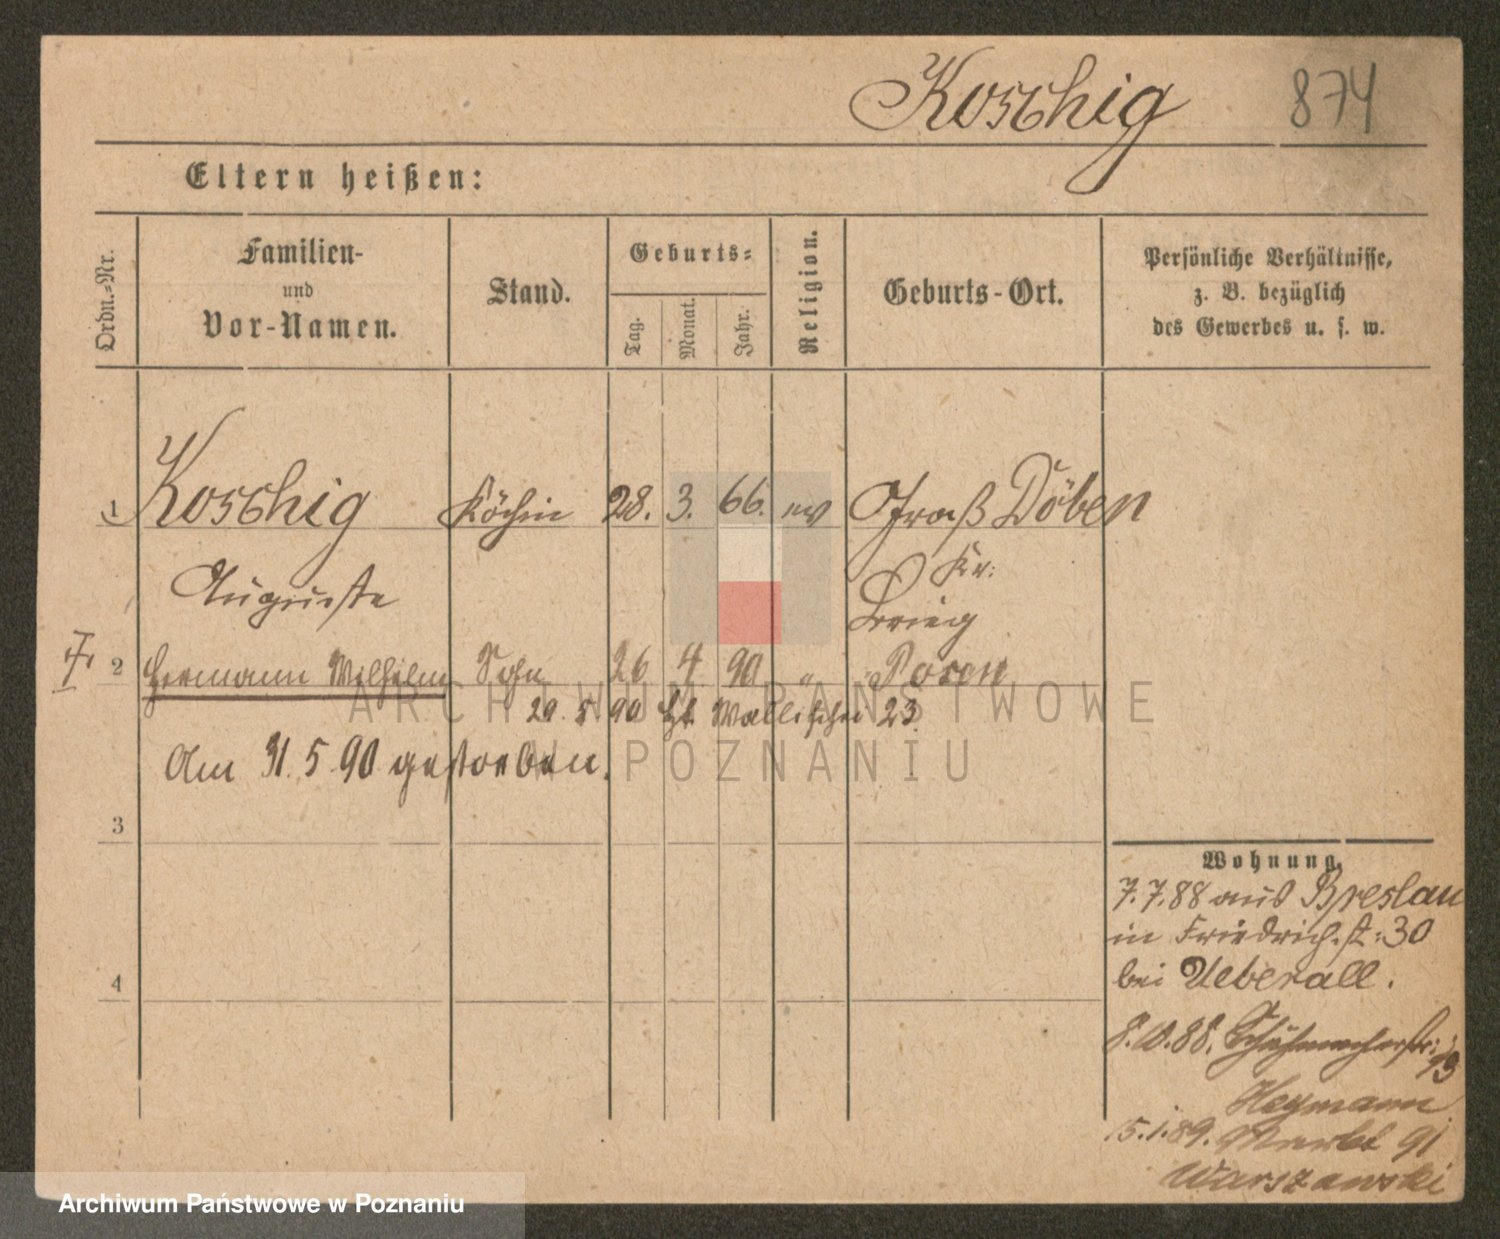 Koschig 874
Eltern heißen:
Ordn.-Nr.
Familien-
und
Vor-Namen.
Stand.
Geburts-
Tag.
Monat.
Jahr.
Religion.
Geburts-Ort.
Persönliche Verhältnisse,
z. B. bezüglich
des Gewerbes u. s. w.
1 Koschig Köchin 28. 3. 66. ev Groß Döben
Auguste
Kr:
Brieg
2 Hermann Wilhelm Sohn 26 4 90 " Posen
29. 5 90 Wallischei 23
Am 31. 5 90 gestorben.
3
4
Wohnung.
7.7.88 aus Breslau
in Friedrich.st: 30
bei Ueberall.
8.10.88. Schuhmacherstr: 13
Heymann
5.1.89. Markt 91
Warszawski
ARCHIWUM PAŃSTWOWE
W POZNANIU
Archiwum Państwowe w Poznaniu